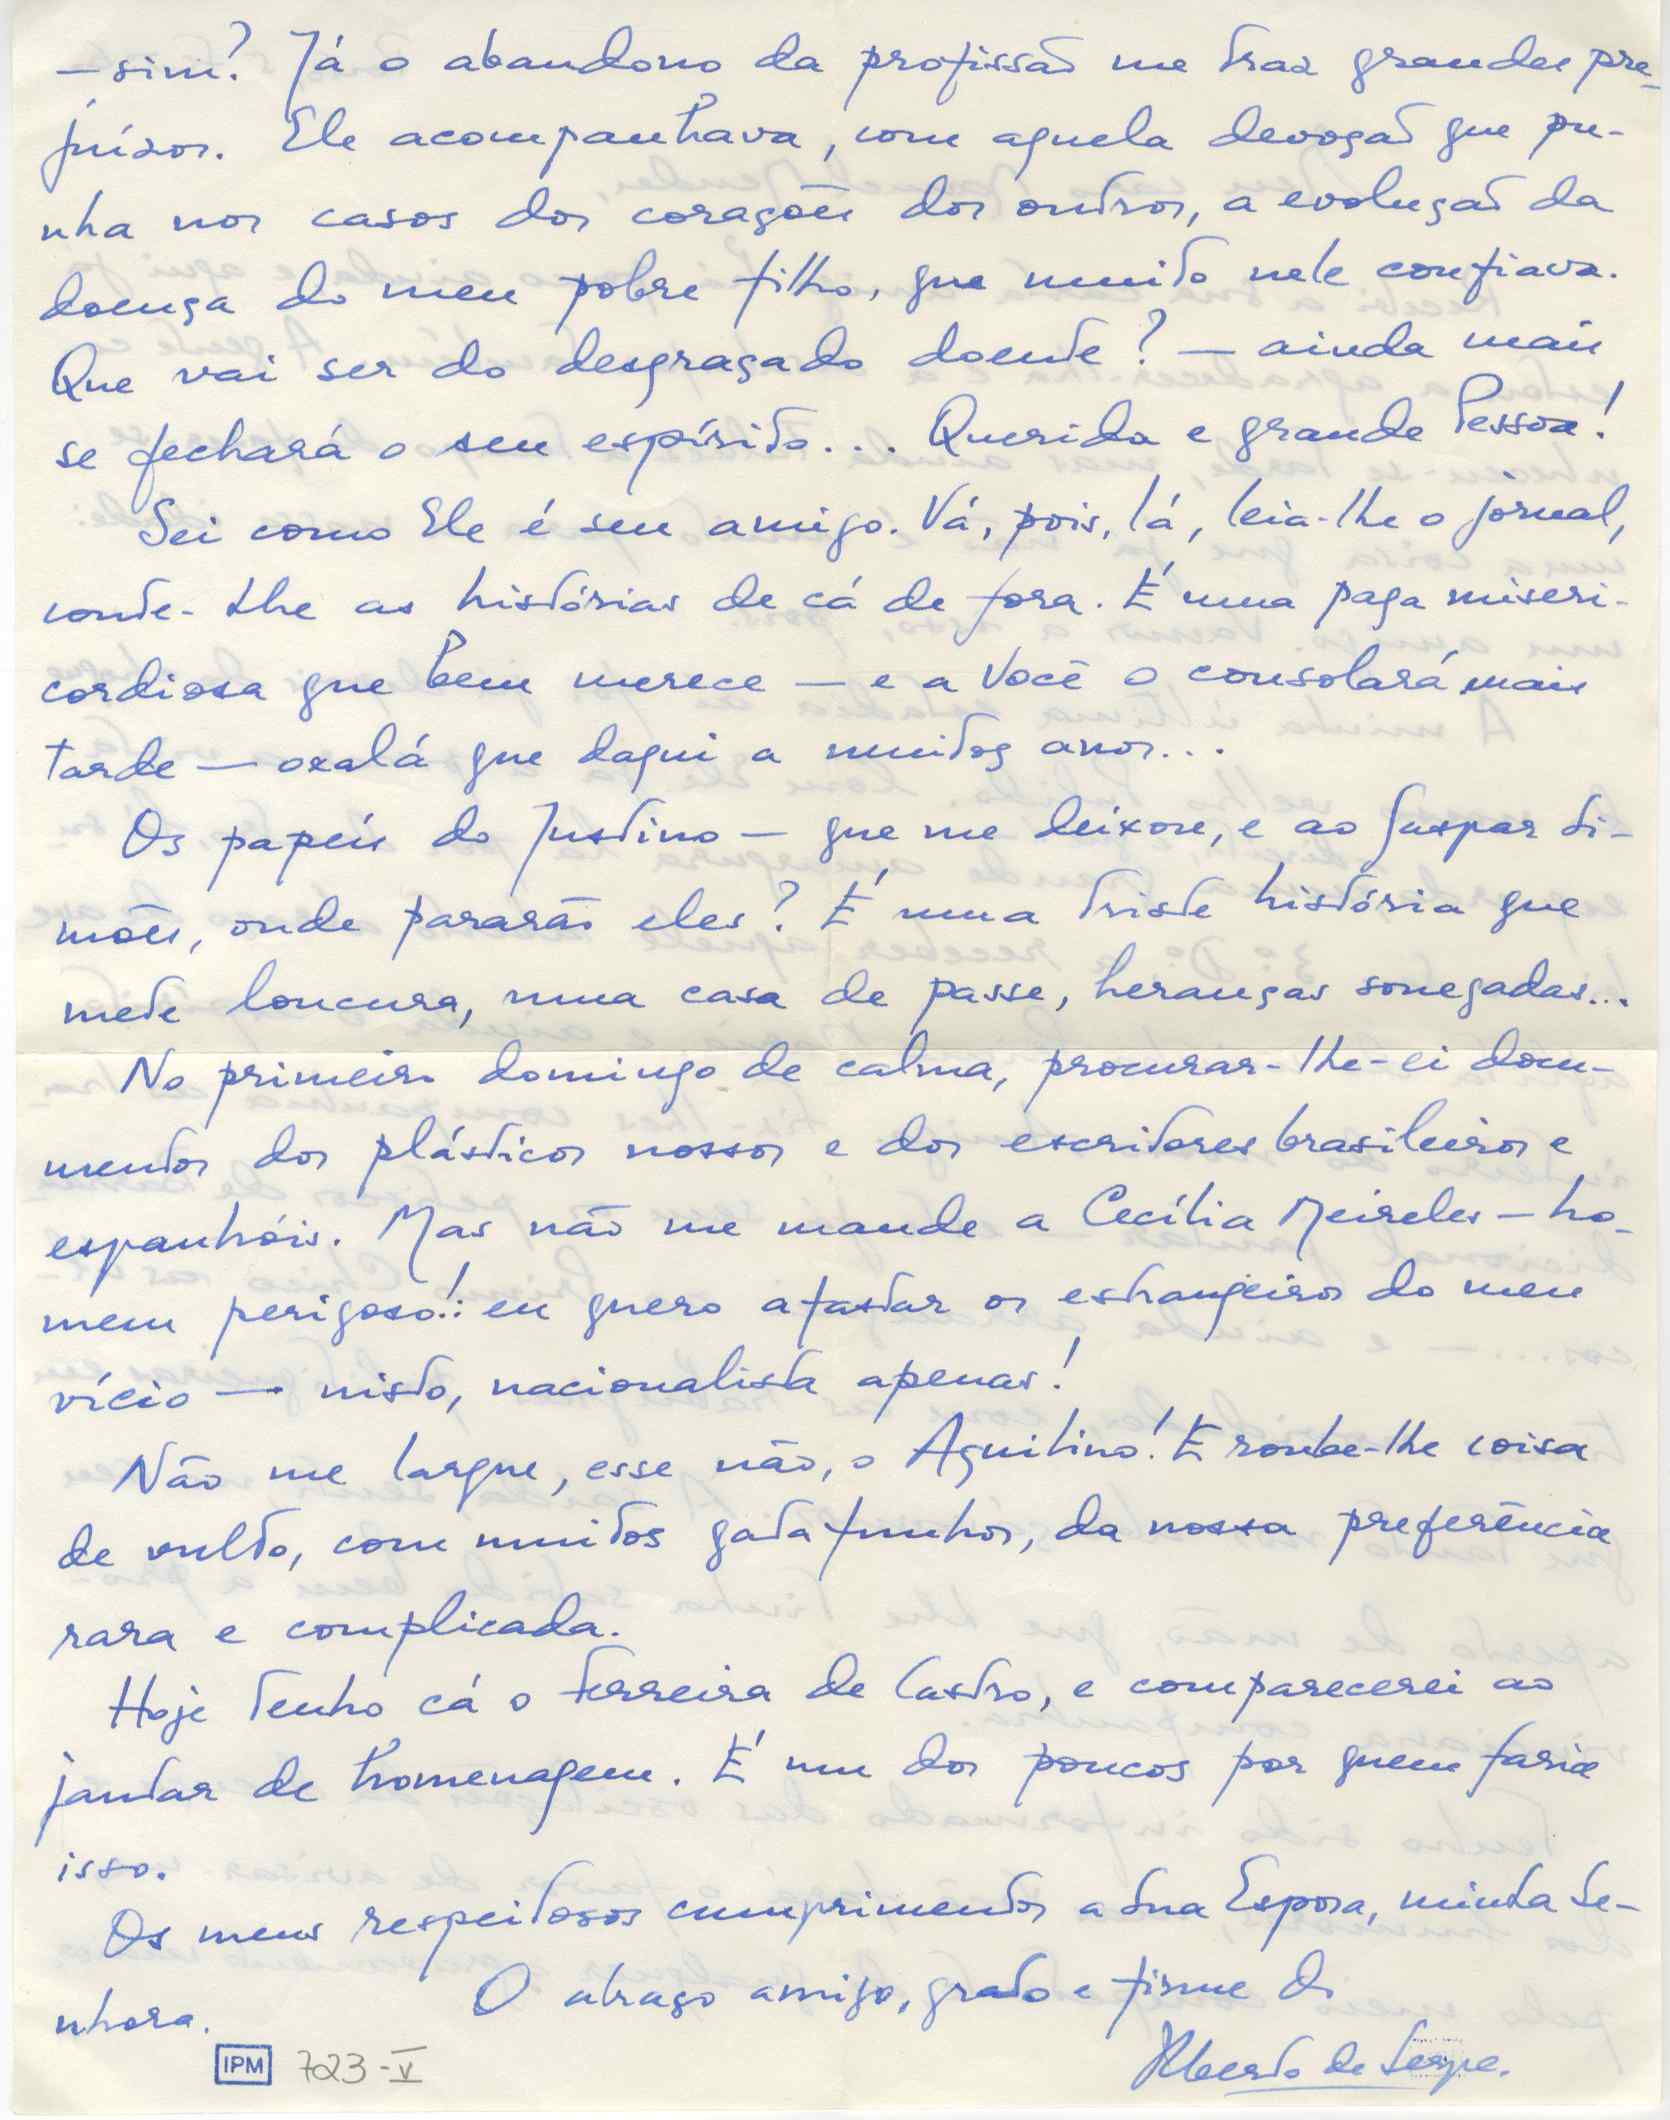 — sim? Já o abandono da profissão me traz grandes pre-
juízos. Ele acompanhava, com aquela devoção que pu-
nha nos casos dos corações dos outros, a evolução da
doença do meu pobre filho, que muito nele confiava.
Que vai ser do desgraçado doente? — ainda mais
se fechará o seu espírito... Querida e grande Pessoa!
Sei como Ele é seu amigo. Vá, pois, lá, leia-lhe o jornal,
conte-lhe as histórias de cá de fora. É uma paga miseri-
cordiosa que bem merece — e a Você o consolará mais
tarde — oxalá que daqui a muitos anos...
Os papéis do Justino — que me deixou, e ao Gaspar Si-
mões, onde pararão eles? É uma triste história que
mete loucura, uma casa de passe, heranças sonegadas...
No primeiro domingo de calma, procurar-lhe-ei docu-
mentos dos plásticos nossos e dos escritores brasileiros e
espanhóis. Mas não me mande a Cecília Meireles — ho-
mem perigoso!: eu quero afastar os estrangeiros do meu
vício — nisto, nacionalista apenas!
Não me largue, esse não, o Aquilino! E roube-lhe coisa
de vulto, com muitos gatafunhos, da nossa preferência
rara e complicada.
Hoje tenho cá o Ferreira de Castro, e comparecerei ao
jantar de homenagem. É um dos poucos por quem faria
isso.
Os meus respeitosos cumprimentos a Sua Esposa, minha Se-
nhora.
O abraço amigo, grato e firme do
Alberto de Serpa.
IPM 723-V